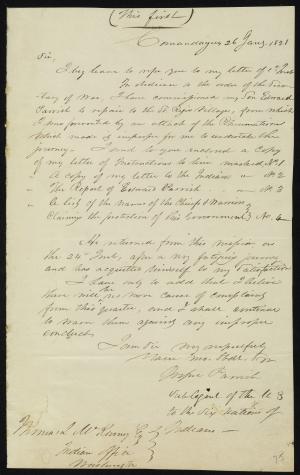 (This first)
Canandaigua 26 Jany. 1821
Sir,
I beg leave to refer you to my letter of 1st Inst
In obedience to the order of the Secre-
tary of War, I have commissioned my Son Edward
Parrish to repair to the St Regis Village, from which
I was prevented by an attack of the Rheumatism
which made it improper for me to undertake the
journey. I send to you enclosed a Copy
of my letter of Instructions to him marked No. 1
A copy of my letter to the Indians " No 2
The Report of Edward Parrish " No 3
A list of the names of the Chiefs & Warriors
Claiming the protection of this Government } No. 4
He returned from this mission on
the 24th Inst, after a very fatiguing journey
and has acquitted himself to my Satisfaction
I have only to add that I believe
there will be no more cause of Complaint
from this quarter, and I shall continue
to warn them against any improper
conduct.
I am Sir very respectfully
Your Obdt.
Jasper Parrish
Sub Agent of the U S
to the Six Nations of
Indians
Thomas L McKenney Esq
Indian Office
Washington